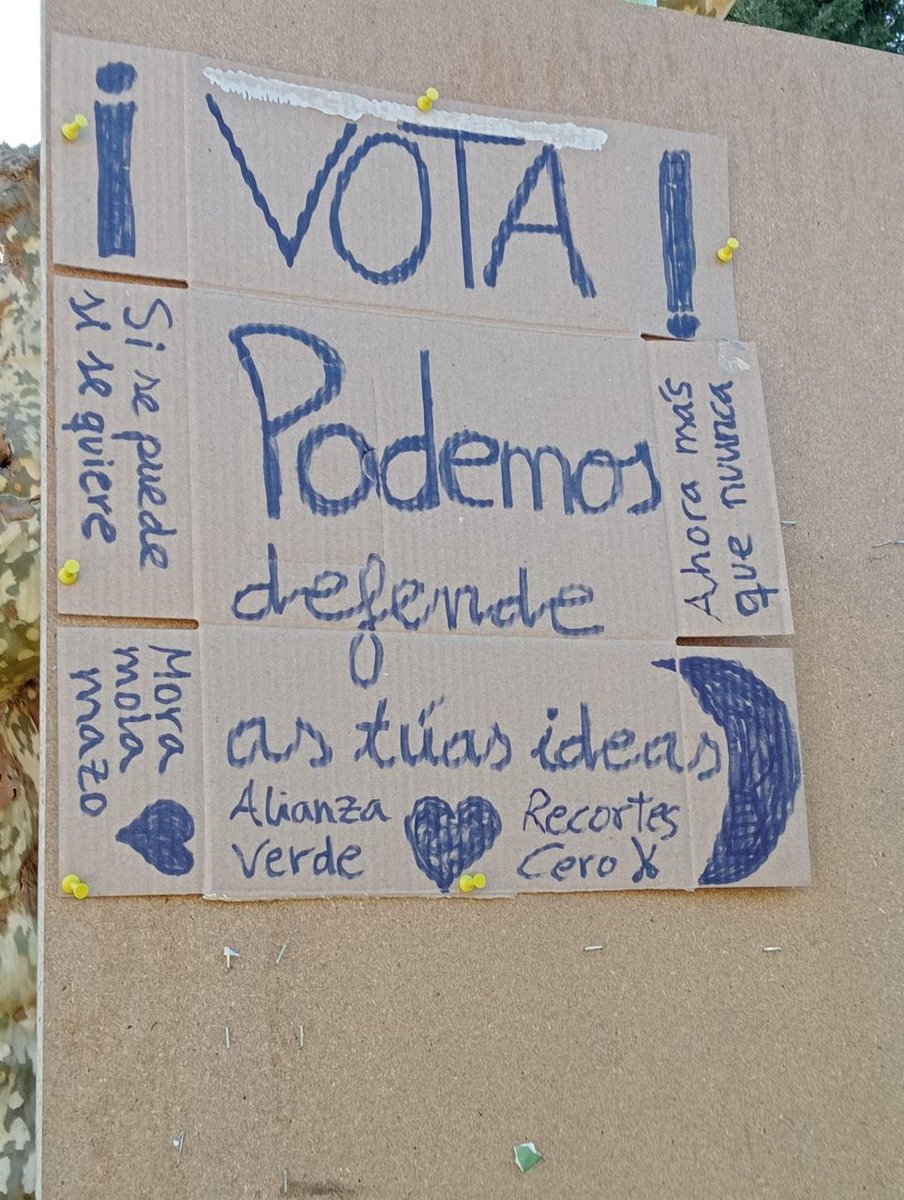 ¡VOTA!
Podemos
defende
as túas ideas
Alianza
verde
Recortes
Cero
Si se puede
si se quiere
Mora
mola
mazo
Ahora más
que nunca